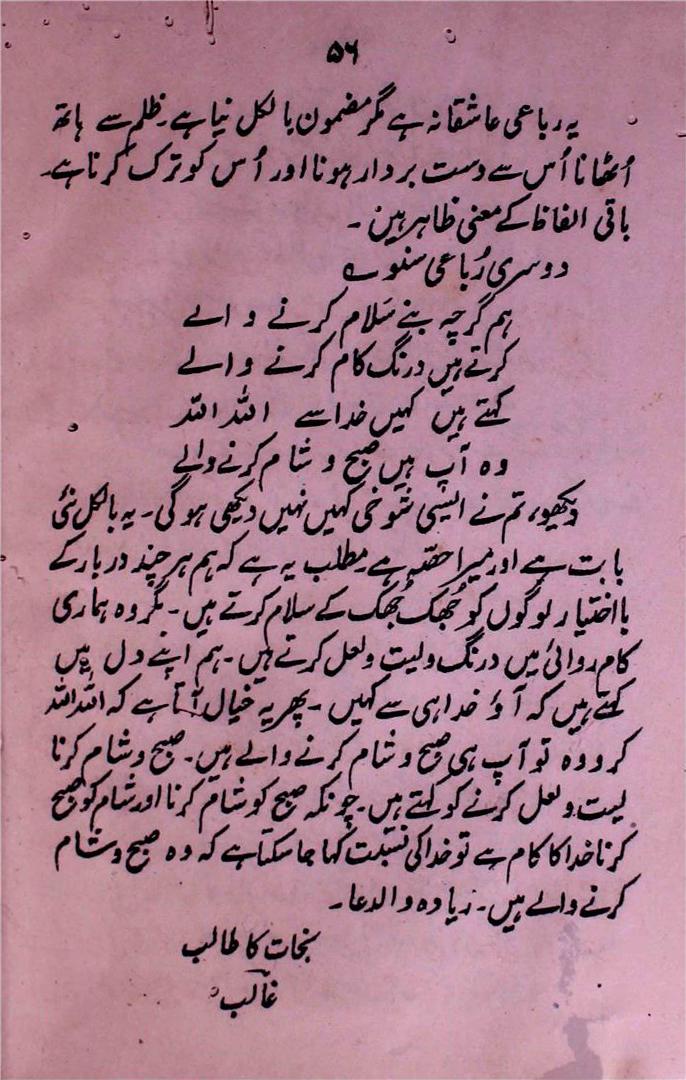 ۵۶
یہ رباعی عاشقانہ ہے مگر مضمون بالکل نیا ہے۔ ظلم سے ہاتھ
اُٹھانا اُس سے دست بردار ہونا اور اُس کو ترک کرنا ہے۔
باقی الفاظ کے معنی ظاہر ہیں۔
دوسری رُباعی سنو ؎
ہم گرچہ بنے سَلام کرنے والے
کرتے ہیں درنگ کام کرنے والے
کہتے ہیں کہیں خدا سے اللہ اللہ
وہ آپ ہیں صبح و شام کرنے والے
دیکھیو، تم نے ایسی شوخی کہیں نہیں دیکھی ہوگی۔ یہ بالکل نئی
بابت ہے اور میرا حصّہ ہے۔ مطلب یہ ہے کہ ہم ہر چند دربار کے
بااختیار لوگوں کو جُھک جُھک کے سلام کرتے ہیں۔ مگر وہ ہماری
کام روائی میں درنگ و لیت و لعل کرتے ہیں۔ ہم اپنے دل میں
کہتے ہیں کہ آؤ خدا ہی سے کہیں۔ پھر یہ خیال آتا ہے کہ اللہ اللہ
کرو وہ تو آپ ہی صبح و شام کرنے والے ہیں۔ صبح و شام کرنا
لیت و لعل کرنے کو کہتے ہیں۔ چونکہ صبح کو شام کرنا اور شام کو صبح
کرنا خدا کا کام ہے تو خدا کی نسبت کہا جا سکتا ہے کہ وہ صبح و شام
کرنے والے ہیں۔ زیادہ والدعا۔
نجات کا طالب
غالب